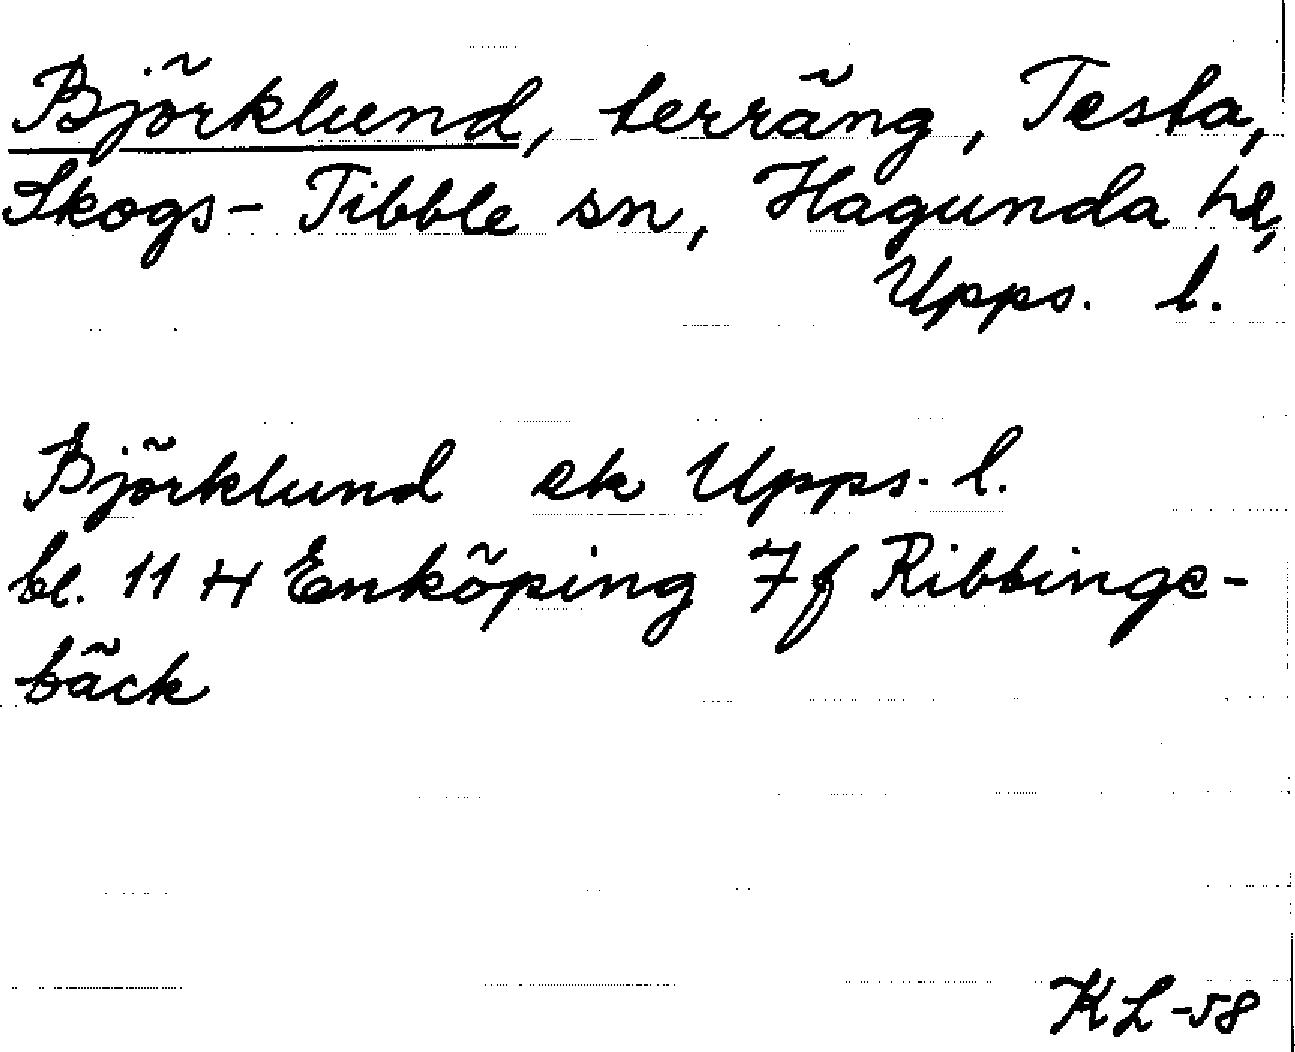 Björklund, terräng, Testa,
Skogs-Tibble sn, Hagunda hd,
Upps. l.
Björklund ek Upps. l.
bl. 11 H Enköping 7 f Ribbings-
bäck
KL-58